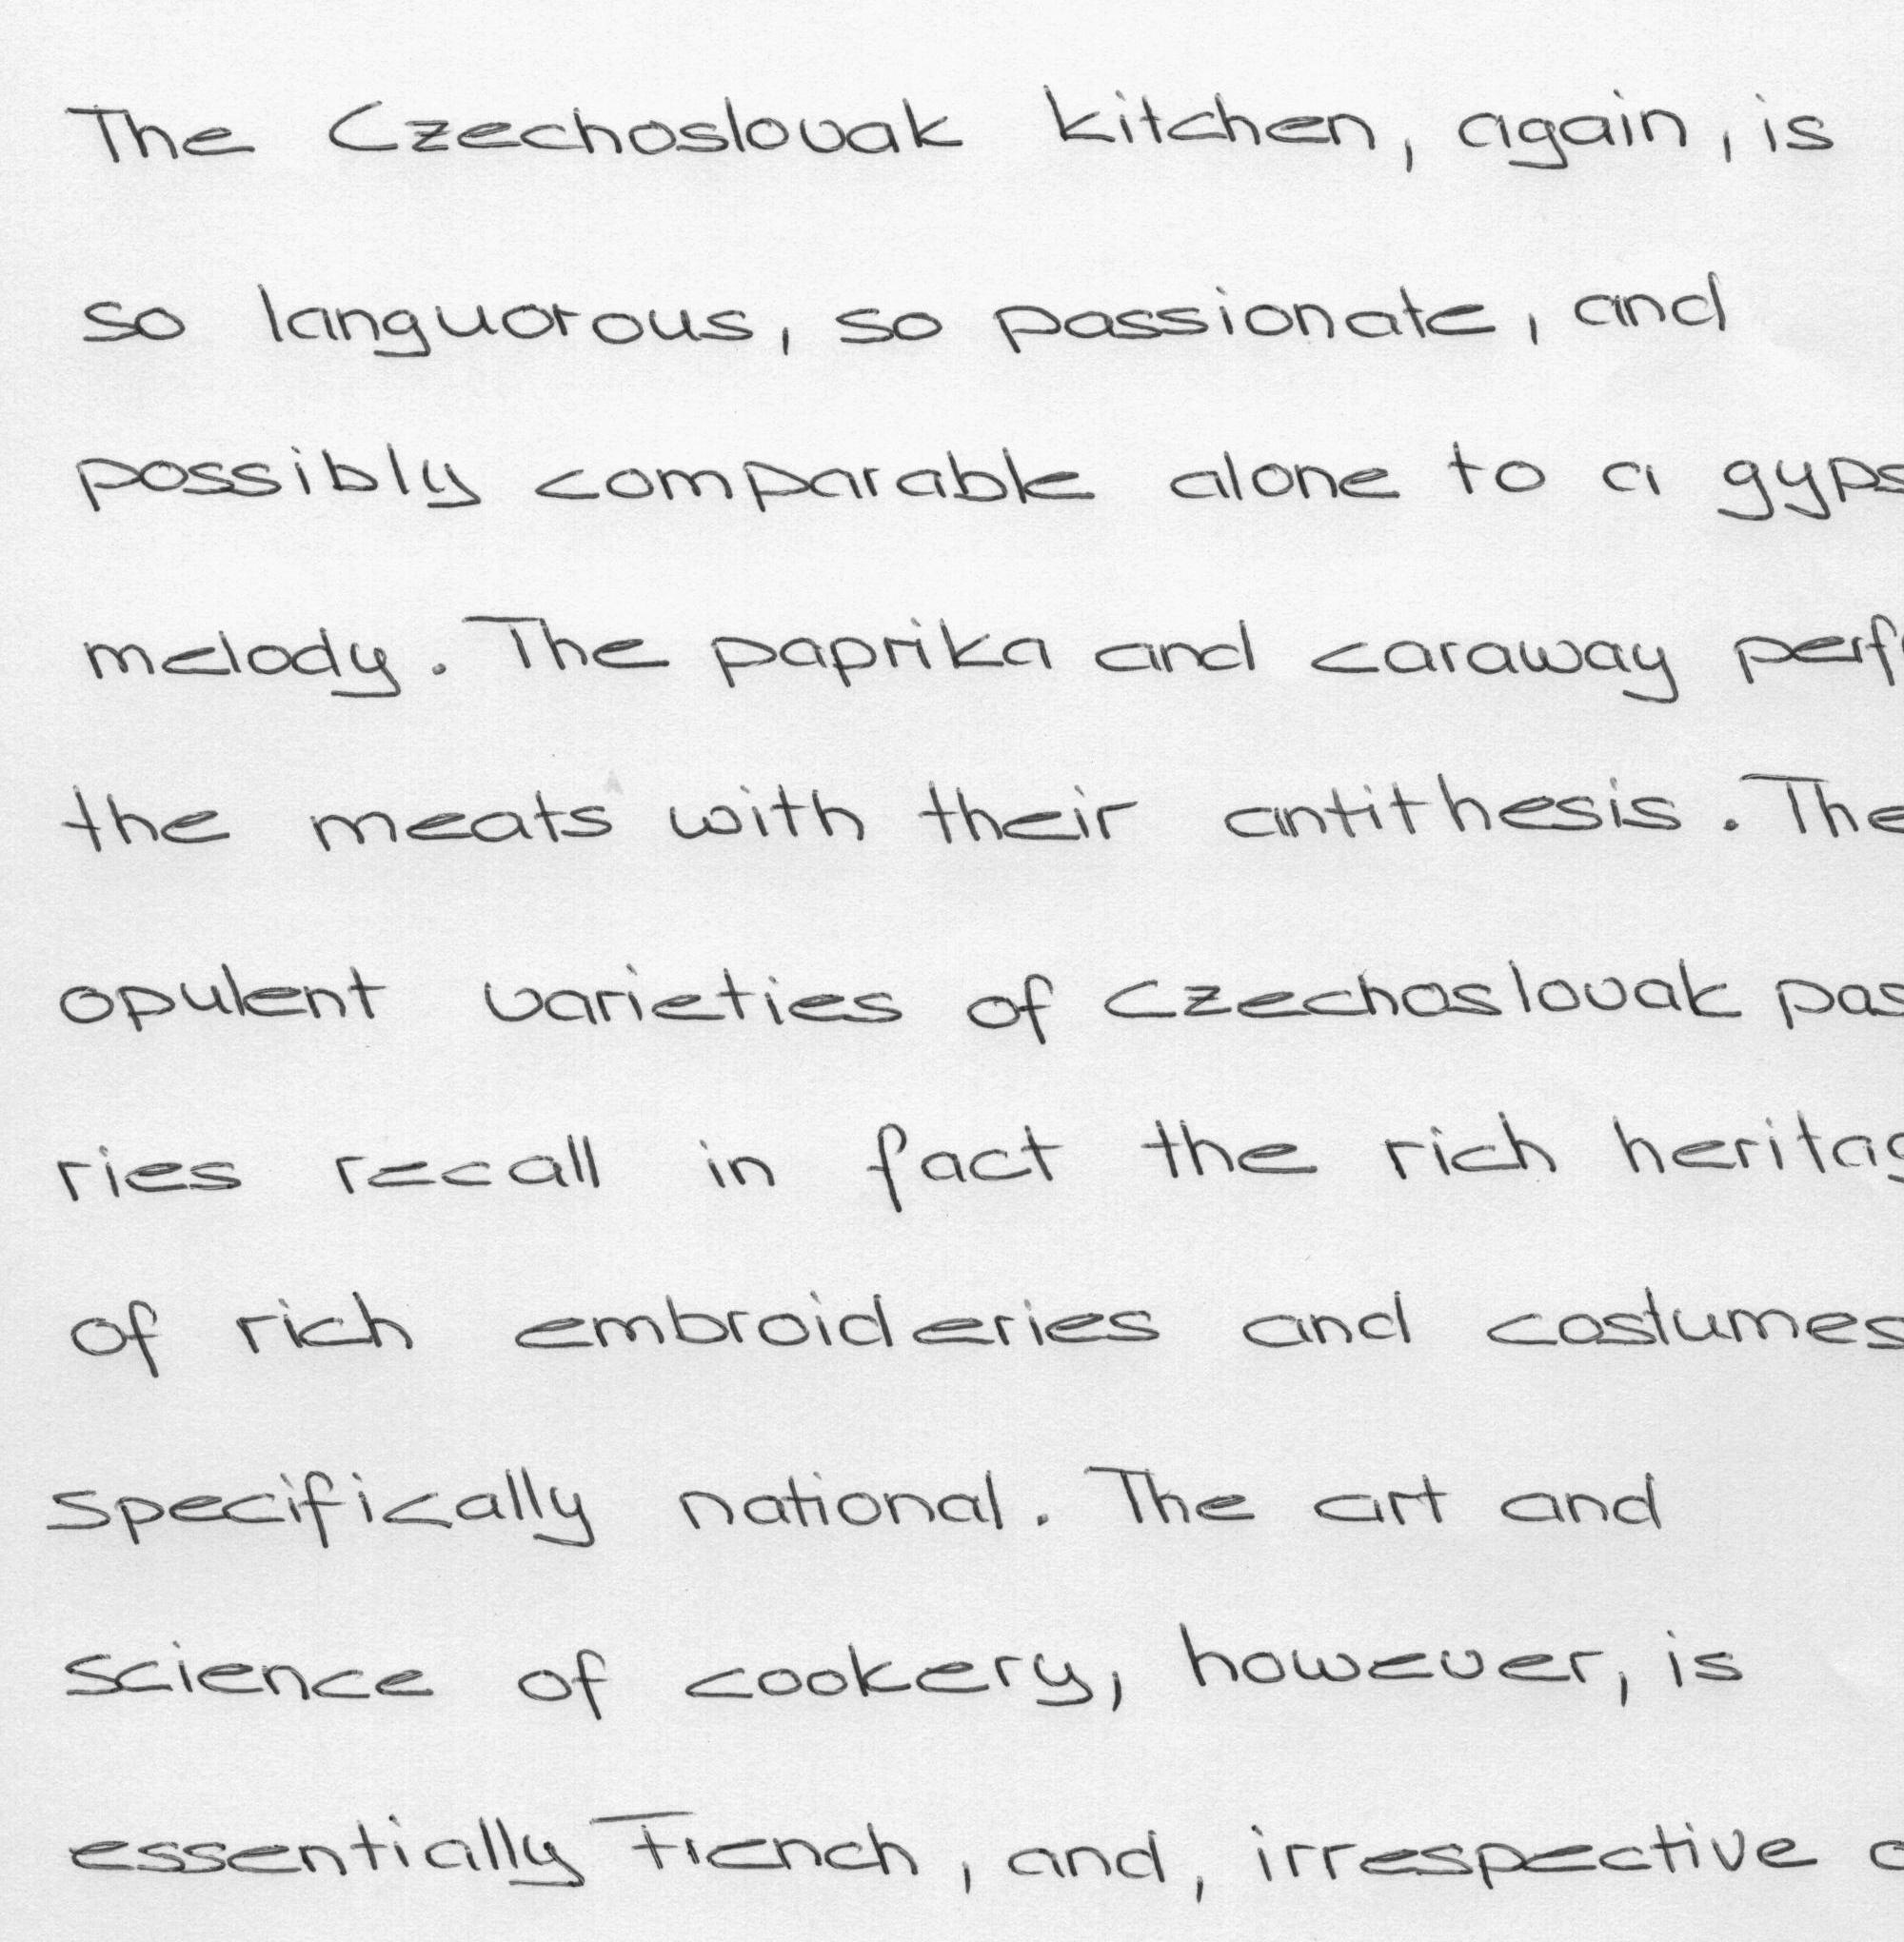 The Czechoslovak kitchen, again, is
so languorous, so passionate, and
possibly comparable alone to a gyps
melody. The paprika and caraway perf
the meats with their antithesis. The
opulent varieties of Czechoslovak pas
ries recall in fact the rich heritag
of rich embroideries and costumes
specifically national. The art and
science of cookery, however, is
essentially French, and, irrespective